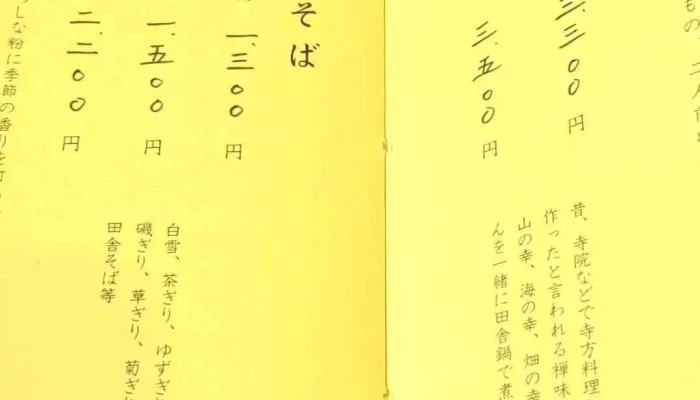 作ったと言われる禅味
昔、寺院などで寺方料理
三、三〇〇円
三、五〇〇円
山の幸、海の幸、畑の幸
んを一緒に田舎鍋で煮
そば
一、三〇〇円
一、五〇〇円
二、二〇〇円
白雪、茶ぎり、ゆずぎり
磯ぎり、草ぎり、菊ぎり
田舎そば等
しな粉に季節の香りを